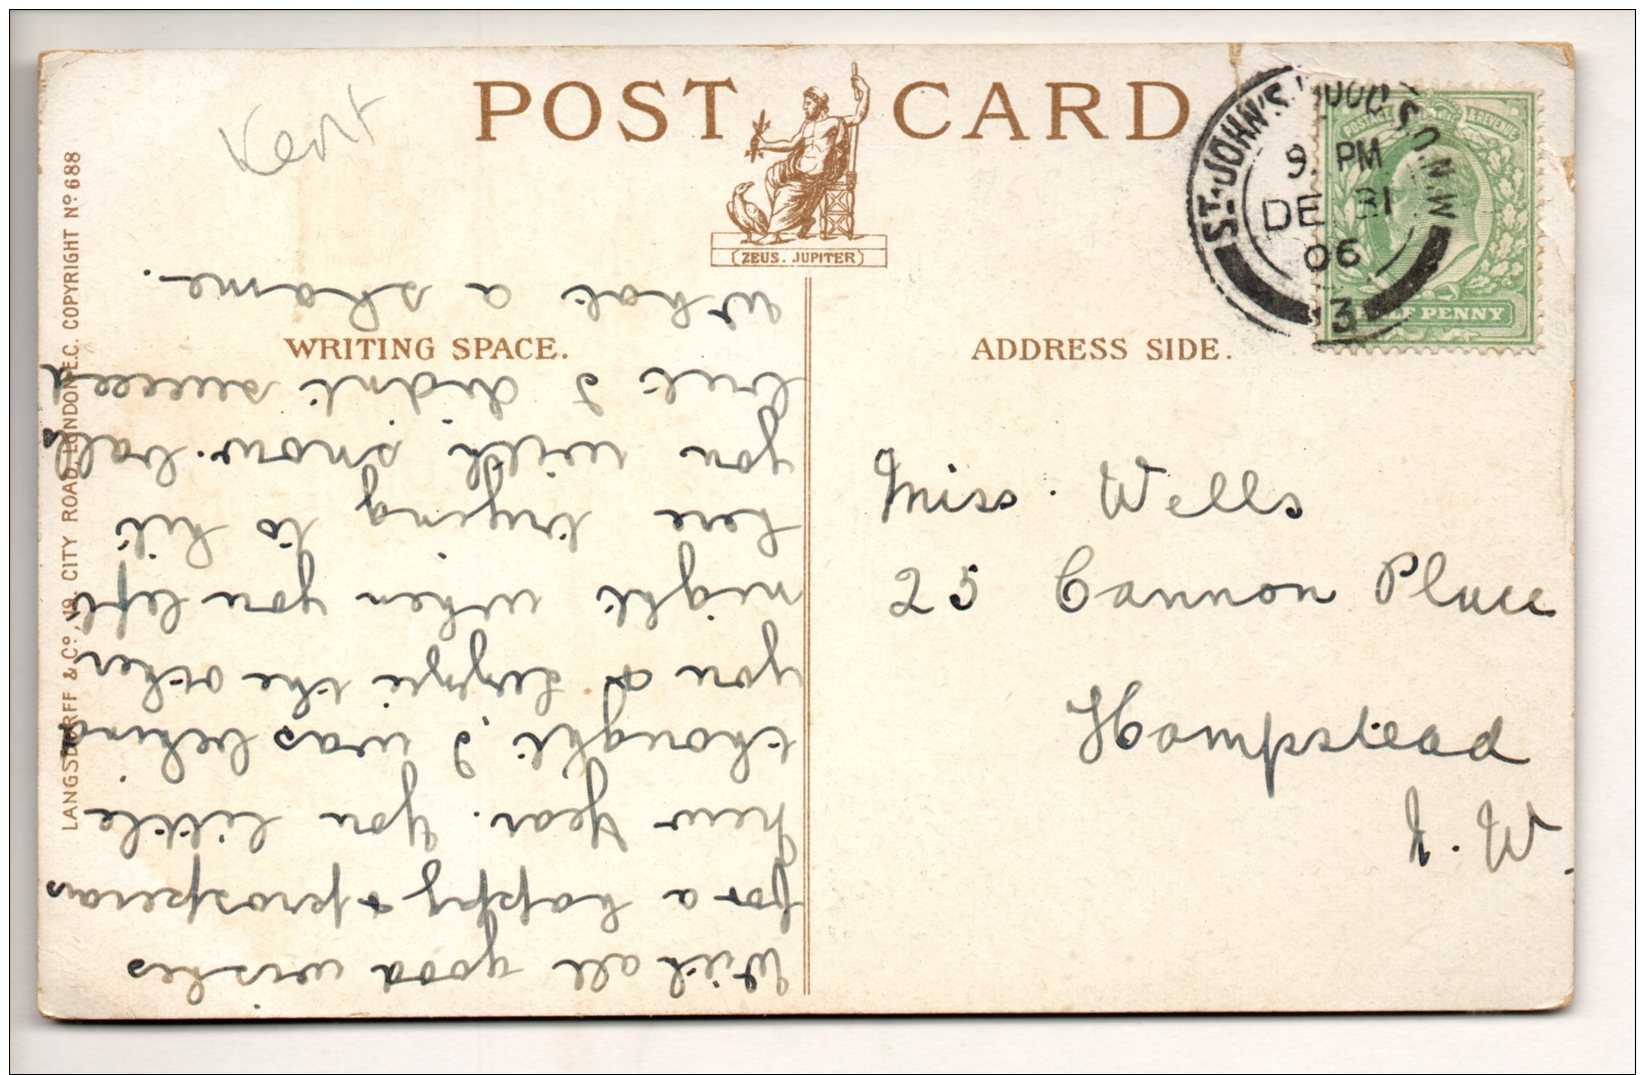 POST CARD
Kent
(ZEUS. JUPITER)
WRITING SPACE.
ADDRESS SIDE.
LANGSDORFF & Co., 19, CITY ROAD, LONDON E.C. COPYRIGHT No 688
ST. JOHN'S WOOD S.O. N.W.
9. PM
DE 31
06
3
POSTAGE & REVENUE
HALF PENNY
Miss. Wells
25 Cannon Place
Hampstead
N. W.
With all good wishes
for a happy & prosperous
New Year. You little
thought I was behind
you & the other
night when you left
here trying to hit
you with snow-balls,
but I didn't succeed
What a shame.